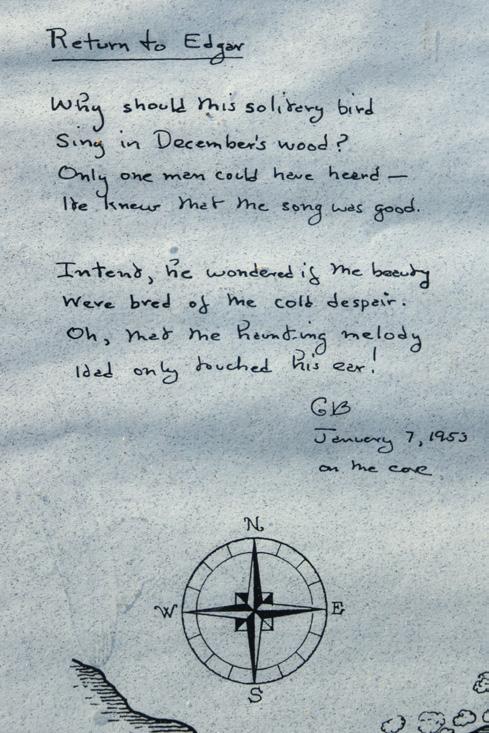 Return to Edgar
Why should this solitary bird
Sing in December's wood?
Only one man could have heard —
He knew that the song was good.
Intent, he wondered if the beauty
Were bred of the cold despair.
Oh, that the haunting melody
Had only touched his ear!
GB
January 7, 1953
on the cove
N
W E
S